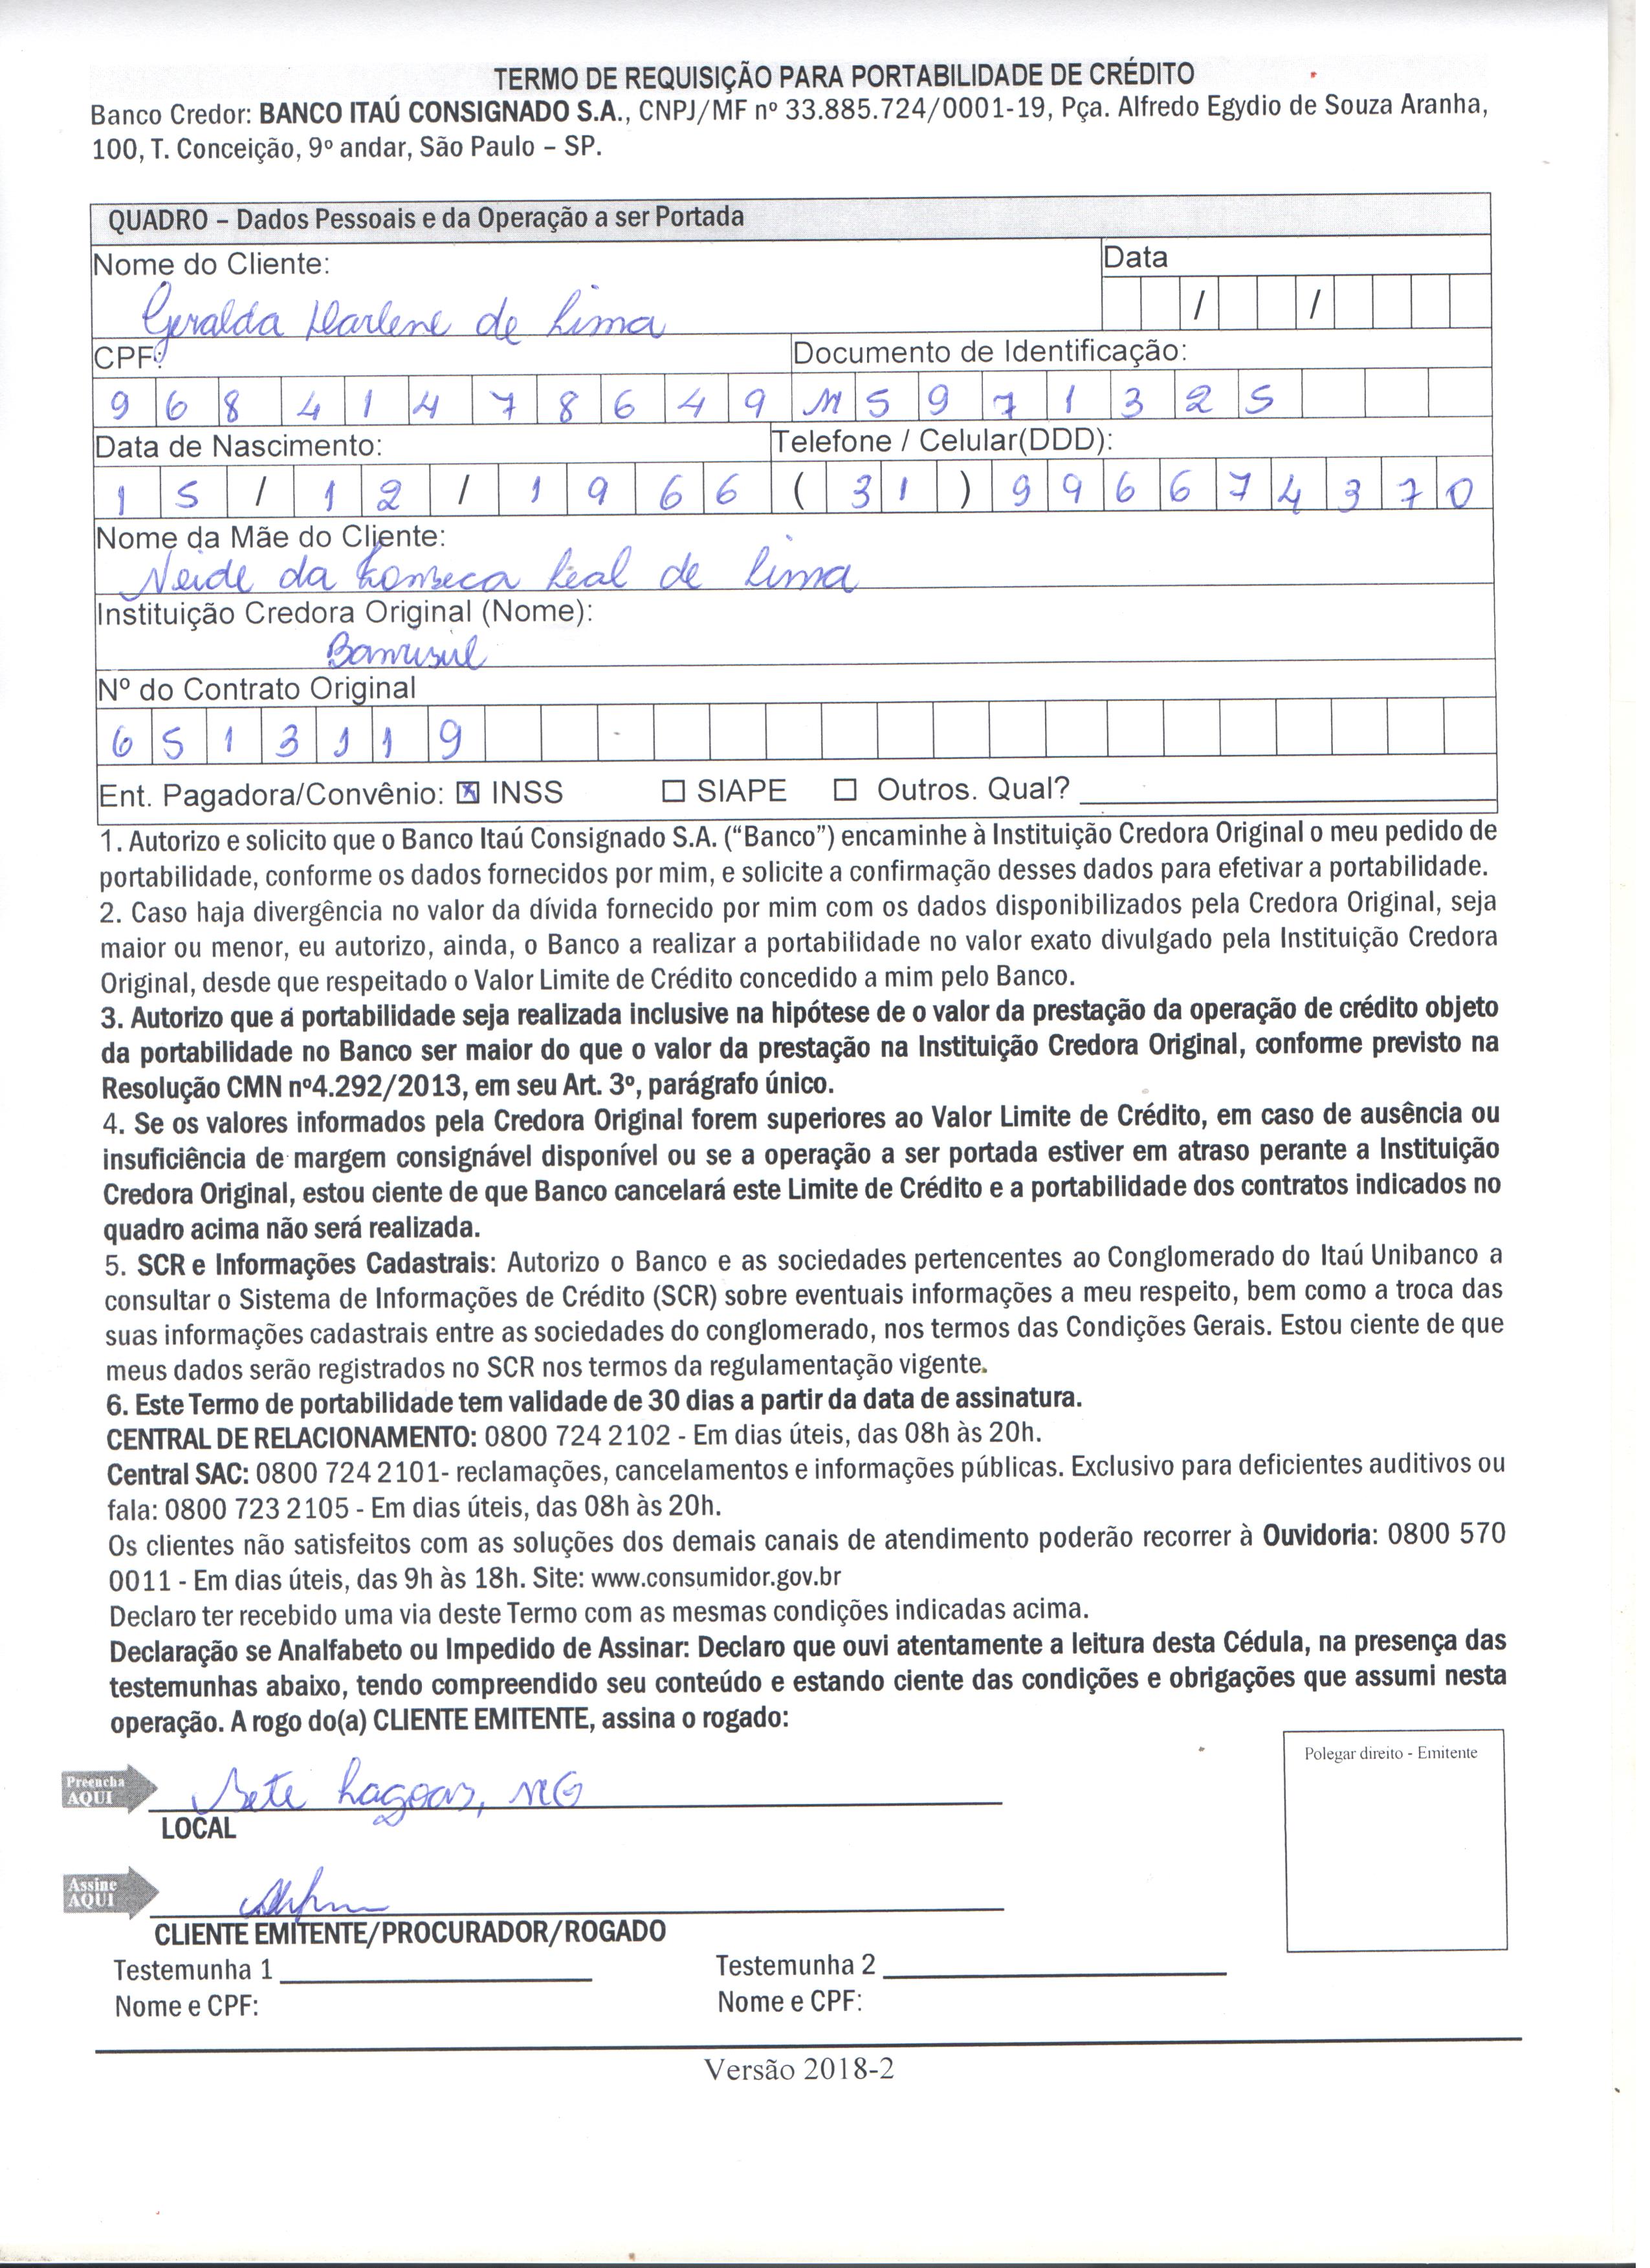 TERMO DE REQUISIÇÃO PARA PORTABILIDADE DE CRÉDITO
Banco Credor: BANCO ITAÚ CONSIGNADO S.A., CNPJ/MF nº 33.885.724/0001-19, Pça. Alfredo Egydio de Souza Aranha,
100, T. Conceição, 9º andar, São Paulo – SP.
QUADRO – Dados Pessoais e da Operação a ser Portada
Nome do Cliente: Data
Geralda Marlene de Lima / /
CPF: Documento de Identificação:
96841478649 M5971325
Data de Nascimento: Telefone / Celular(DDD):
15/12/1966 (31) 996674370
Nome da Mãe do Cliente:
Neide da Fonseca Leal de Lima
Instituição Credora Original (Nome):
Banrisul
Nº do Contrato Original
6513119
Ent. Pagadora/Convênio: ☒ INSS ☐ SIAPE ☐ Outros. Qual?
1. Autorizo e solicito que o Banco Itaú Consignado S.A. (“Banco”) encaminhe à Instituição Credora Original o meu pedido de
portabilidade, conforme os dados fornecidos por mim, e solicite a confirmação desses dados para efetivar a portabilidade.
2. Caso haja divergência no valor da dívida fornecido por mim com os dados disponibilizados pela Credora Original, seja
maior ou menor, eu autorizo, ainda, o Banco a realizar a portabilidade no valor exato divulgado pela Instituição Credora
Original, desde que respeitado o Valor Limite de Crédito concedido a mim pelo Banco.
3. Autorizo que a portabilidade seja realizada inclusive na hipótese de o valor da prestação da operação de crédito objeto
da portabilidade no Banco ser maior do que o valor da prestação na Instituição Credora Original, conforme previsto na
Resolução CMN nº4.292/2013, em seu Art. 3º, parágrafo único.
4. Se os valores informados pela Credora Original forem superiores ao Valor Limite de Crédito, em caso de ausência ou
insuficiência de margem consignável disponível ou se a operação a ser portada estiver em atraso perante a Instituição
Credora Original, estou ciente de que Banco cancelará este Limite de Crédito e a portabilidade dos contratos indicados no
quadro acima não será realizada.
5. SCR e Informações Cadastrais: Autorizo o Banco e as sociedades pertencentes ao Conglomerado do Itaú Unibanco a
consultar o Sistema de Informações de Crédito (SCR) sobre eventuais informações a meu respeito, bem como a troca das
suas informações cadastrais entre as sociedades do conglomerado, nos termos das Condições Gerais. Estou ciente de que
meus dados serão registrados no SCR nos termos da regulamentação vigente.
6. Este Termo de portabilidade tem validade de 30 dias a partir da data de assinatura.
CENTRAL DE RELACIONAMENTO: 0800 724 2102 - Em dias úteis, das 08h às 20h.
Central SAC: 0800 724 2101- reclamações, cancelamentos e informações públicas. Exclusivo para deficientes auditivos ou
fala: 0800 723 2105 - Em dias úteis, das 08h às 20h.
Os clientes não satisfeitos com as soluções dos demais canais de atendimento poderão recorrer à Ouvidoria: 0800 570
0011 - Em dias úteis, das 9h às 18h. Site: www.consumidor.gov.br
Declaro ter recebido uma via deste Termo com as mesmas condições indicadas acima.
Declaração se Analfabeto ou Impedido de Assinar: Declaro que ouvi atentamente a leitura desta Cédula, na presença das
testemunhas abaixo, tendo compreendido seu conteúdo e estando ciente das condições e obrigações que assumi nesta
operação. A rogo do(a) CLIENTE EMITENTE, assina o rogado:
Polegar direito - Emitente
Preencha
AQUI
Sete Lagoas, MG
LOCAL
Assine
AQUI
CLIENTE EMITENTE/PROCURADOR/ROGADO
Testemunha 1 Testemunha 2
Nome e CPF: Nome e CPF:
Versão 2018-2